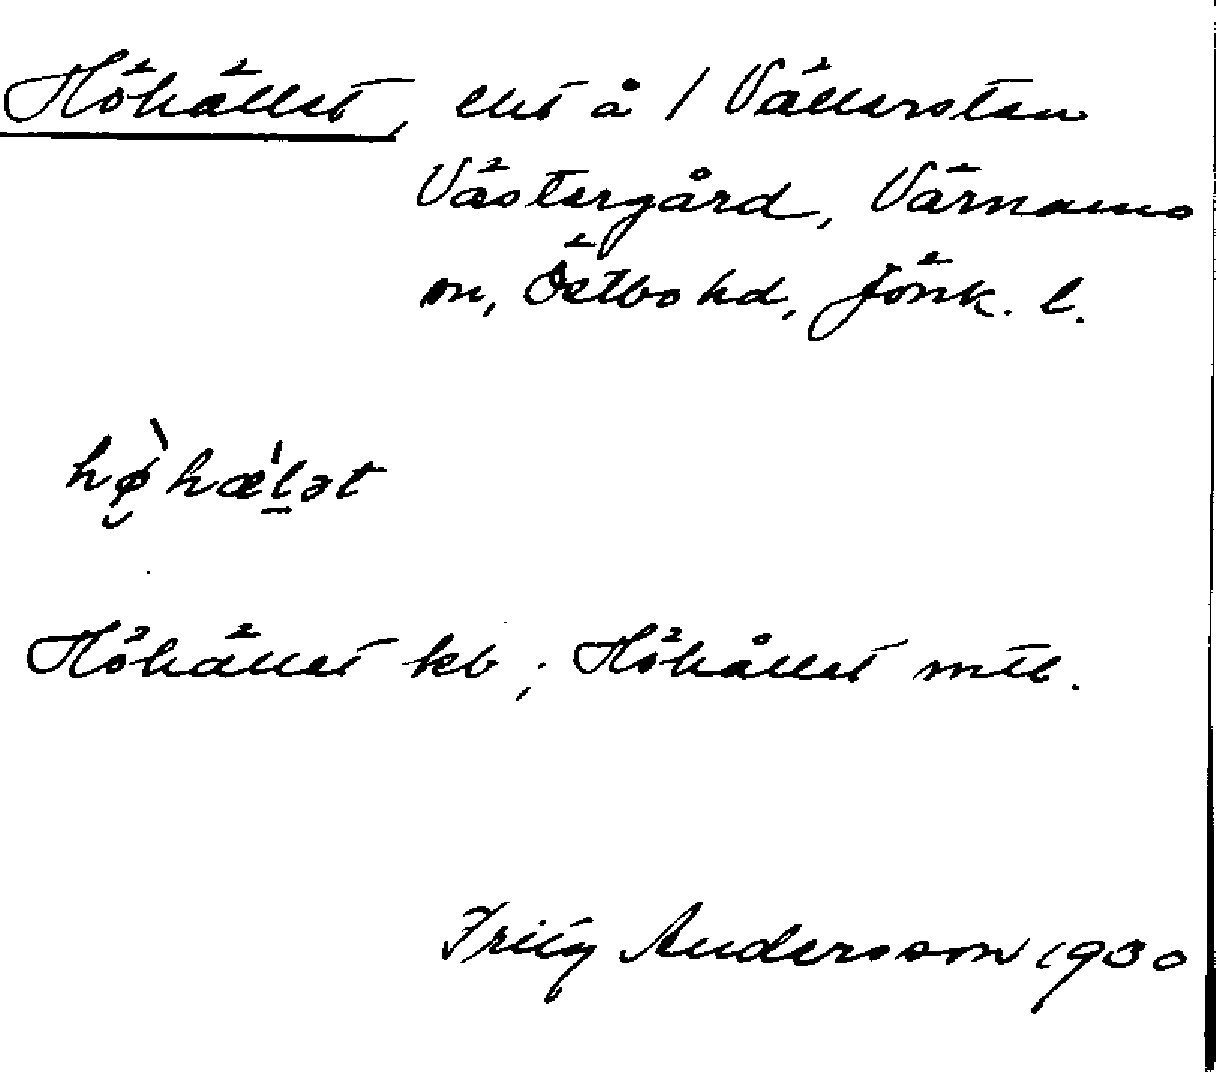 Höhället, ehs å 1 Vällersten
Västergård, Värnamo
sn, Östbo hd, Jönk. l.
hø̀hæ'l̲ət
Höhället kb; Höhållet mtl.
Fritz Andersson 1930